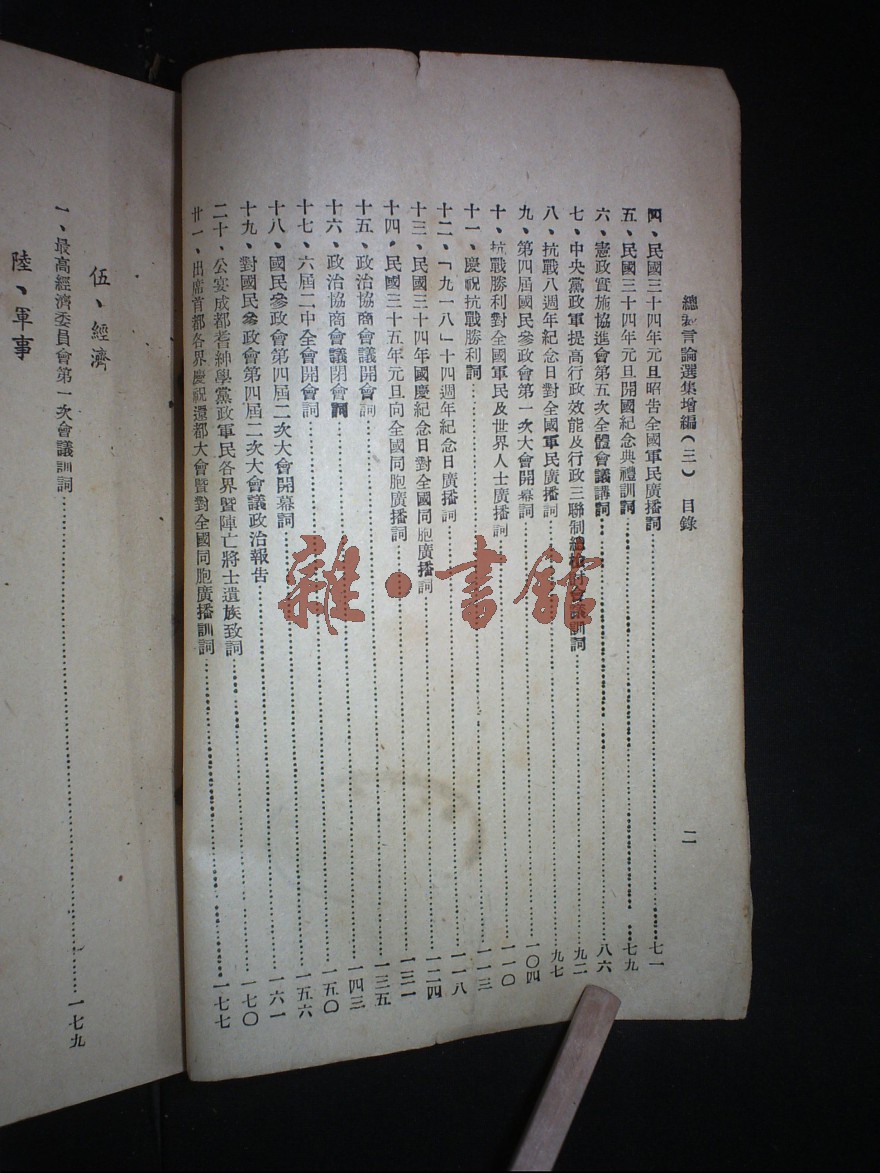 總裁言論選集增編(三) 目錄
二
四、民國三十四年元旦昭告全國軍民廣播詞……七一
五、民國三十四年元旦開國紀念典禮訓詞……七九
六、憲政實施協進會第五次全體會議講詞……八六
七、中央黨政軍提高行政效能及行政三聯制總檢討會議訓詞……九二
八、抗戰八週年紀念日對全國軍民廣播詞……九七
九、第四屆國民參政會第一次大會開幕詞……一〇四
十、抗戰勝利對全國軍民及世界人士廣播詞……一一〇
十一、慶祝抗戰勝利詞……一一三
十二、「九一八」十四週年紀念日廣播詞……一一八
十三、民國三十四年國慶紀念日對全國同胞廣播詞……一二四
十四、民國三十五年元旦向全國同胞廣播詞……一三一
十五、政治協商會議開會詞……一三五
十六、政治協商會議閉會詞……一四三
十七、六屆二中全會開會詞……一五〇
十八、國民參政會第四屆二次大會開幕詞……一五六
十九、對國民參政會第四屆二次大會政治報告……一六一
二十、公宴成都耆紳學黨政軍民各界暨陣亡將士遺族致詞……一七〇
廿一、出席首都各界慶祝還都大會暨對全國同胞廣播訓詞……一七七
伍、經濟
一、最高經濟委員會第一次會議訓詞……一七九
陸、軍事
雜·書館